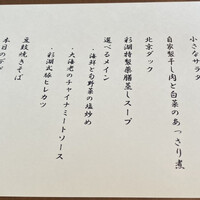 小さなサラダ
自家製干し肉と白菜のあっさり煮
北京ダック
彩湖特製薬膳蒸しスープ
選べるメイン
・海鮮と旬野菜の塩炒め
・大海老のチャイナミートソース
・彩湖式豚ヒレカツ
豆豉焼きそば
本日のデザ